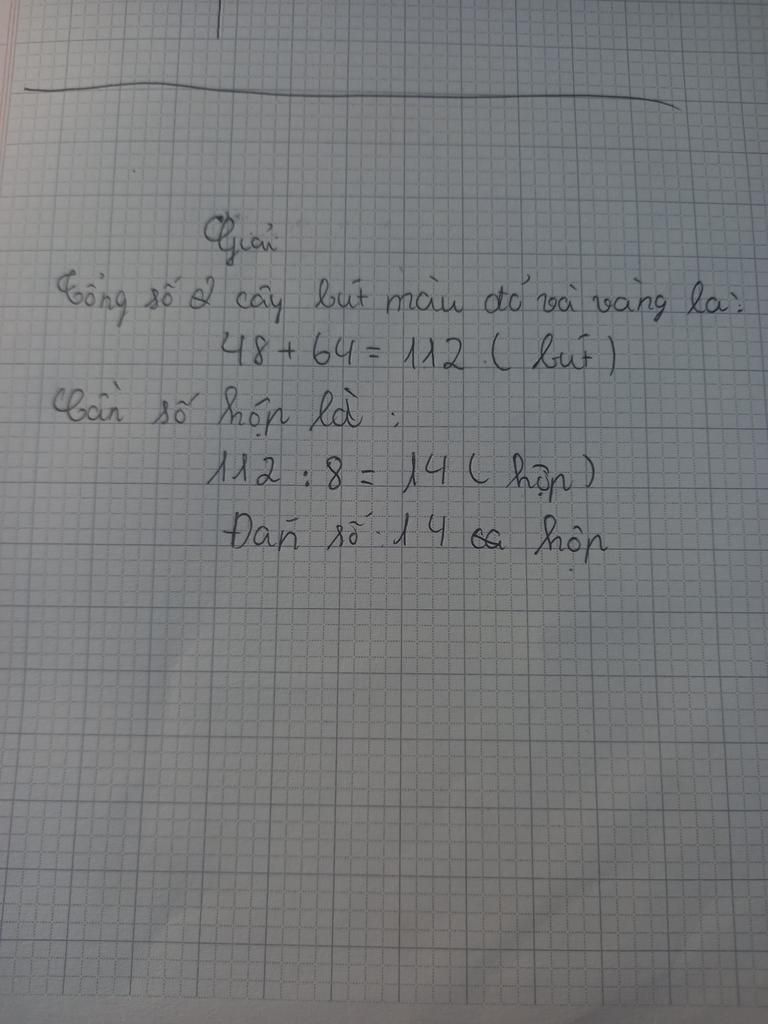 Giải
Tổng số cây bút màu đỏ và vàng là:
48 + 64 = 112 (bút)
Cần số hộp là:
112 : 8 = 14 (hộp)
Đáp số: 14 hộp